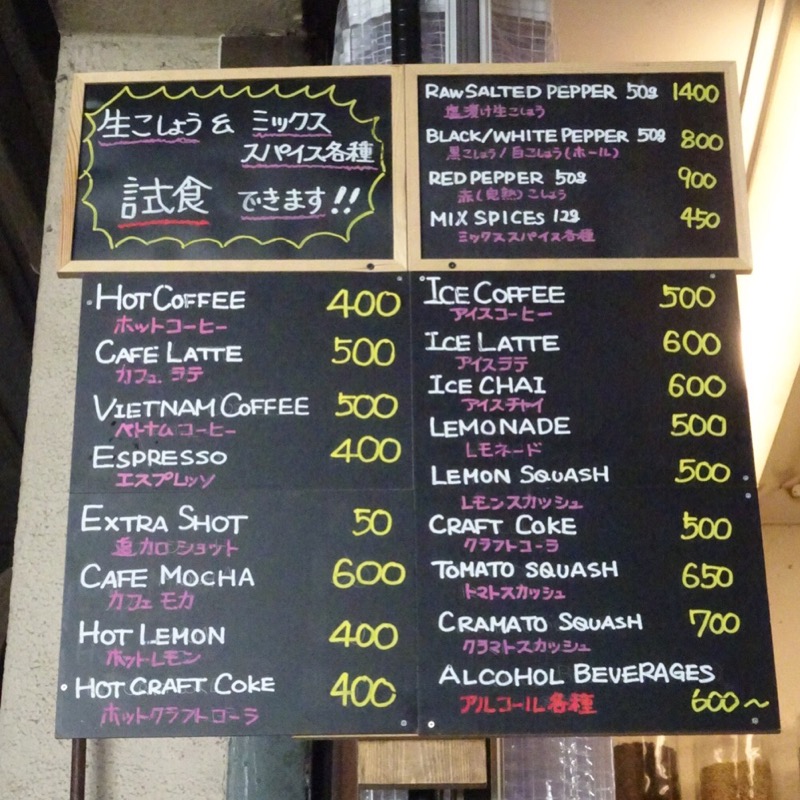 生こしょう & ミックス
スパイス各種
試食 できます!!
RAW SALTED PEPPER 50g 1400
塩漬け生こしょう
BLACK/WHITE PEPPER 50g 800
黒こしょう/白こしょう(ホール)
RED PEPPER 50g 900
赤(完熟)こしょう
MIX SPICES 12g 450
ミックススパイス各種
HOT COFFEE 400
ホットコーヒー
CAFE LATTE 500
カフェ ラテ
VIETNAM COFFEE 500
ベトナムコーヒー
ESPRESSO 400
エスプレッソ
EXTRA SHOT 50
追加ロショット
CAFE MOCHA 600
カフェ モカ
HOT LEMON 400
ホットレモン
・HOT CRAFT COKE 400
ホットクラフトコーラ
ICE COFFEE 500
アイスコーヒー
ICE LATTE 600
アイスラテ
ICE CHAI 600
アイスチャイ
LEMONADE 500
レモネード
LEMON SQUASH 500
レモンスカッシュ
CRAFT COKE 500
クラフトコーラ
TOMATO SQUASH 650
トマトスカッシュ
CRAMATO SQUASH 700
クラマトスカッシュ
ALCOHOL BEVERAGES
アルコール各種 600〜